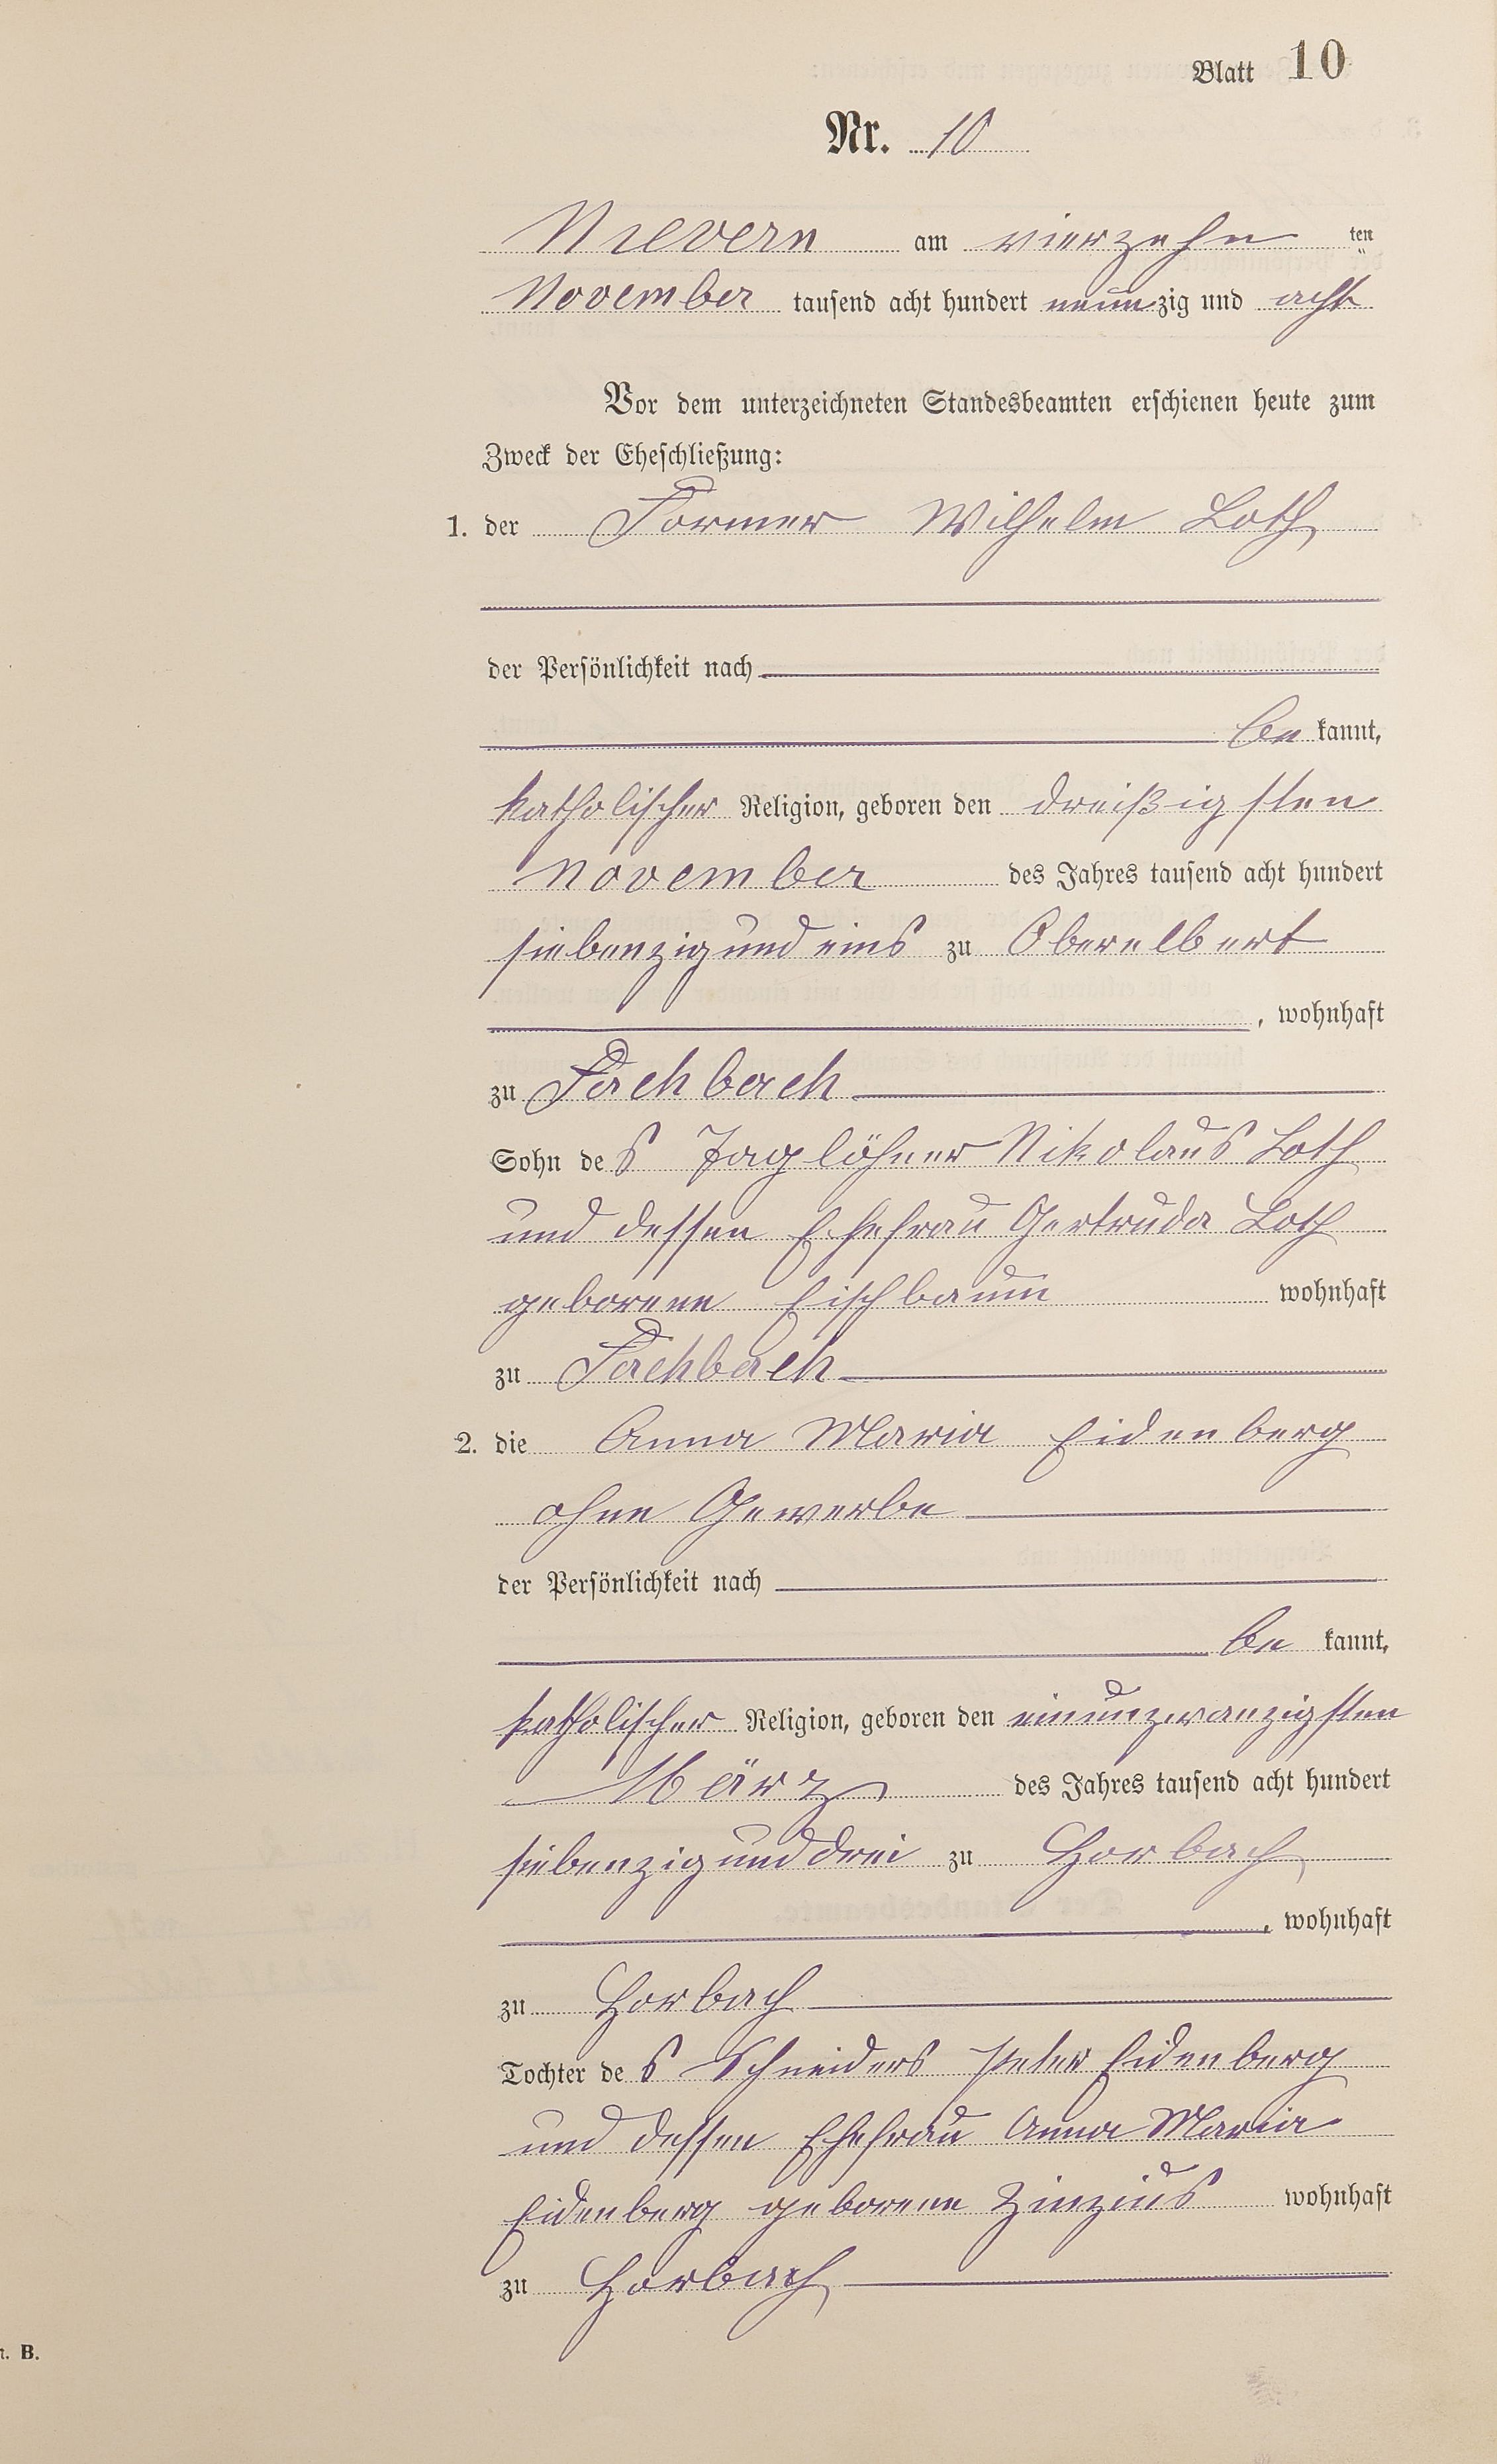 Blatt 10
Nr. 10
Nievern am vierzehn ten
November tausend acht hundert neunzig und acht
Vor dem unterzeichneten Standesbeamten erschienen heute zum
Zweck der Eheschließung:
1. der Former Wilhelm Loth
der Persönlichkeit nach
be kannt,
katholischer Religion, geboren den dreißigsten
November des Jahres tausend acht hundert
siebenzig und eins zu Oberelbert
, wohnhaft
zu Fachbach
Sohn des Taglöhner Nikolaus Loth
und dessen Ehefrau Gertruda Loth
geborene Eischbaum wohnhaft
zu Fachbach
2. die Anna Maria Eidenberg
ohne Gewerbe
der Persönlichkeit nach
be kannt,
katholischer Religion, geboren den einunzwanzigsten
März des Jahres tausend acht hundert
siebenzig und drei zu Horbach
, wohnhaft
zu Horbach
Tochter des Schneiders Peter Eidenberg
und dessen Ehefrau Anna Maria
Eidenberg geborene Zinzius wohnhaft
zu Horbach
. B.